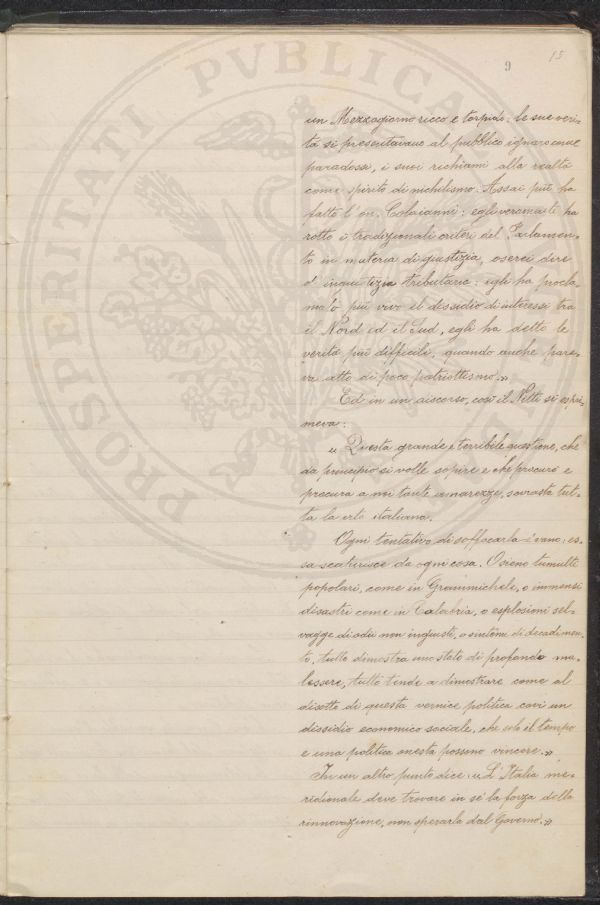 9 15
PROSPERITATI PVBLICA
un Mezzogiorno ricco e torpido: le sue veri-
tà si presentavano al pubblico ignaro come
paradossi, i suoi richiami alla realtà
come spirito di nichilismo. Assai più ha
fatto l'on. Colaianni: egli veramente ha
rotto i tradizionali criteri del Parlamen-
to in materia di giustizia, oserei dire
d'ingiustizia tributaria: egli ha procla-
mato più vivo il dissidio di interessi tra
il Nord ed il Sud, egli ha detto le
verità più difficili, quando anche pare-
va atto di poco patriottismo.»
Ed in un discorso, così il Nitti si espri-
meva:
« Questa grande e terribile questione, che
da principio si volle sopire e che procurò e
procura a noi tante amarezze, sovrasta tut-
ta la vita italiana.
Ogni tentativo di soffocarla è vano: es-
sa scaturisce da ogni cosa. O sieno tumulti
popolari, come in Grammichele, o immensi
disastri come in Calabria, o esplosioni sel-
vagge di odii non ingiusti, o sintomi di decadimen-
to, tutto dimostra uno stato di profondo ma-
lessere, tutto tende a dimostrare come al
disotto di questa vernice politica covi un
dissidio economico sociale, che solo il tempo
e una politica onesta possono vincere.»
In un altro punto dice: « L'Italia me-
ridionale deve trovare in sè la forza della
rinnovazione, non sperarla dal Governo.»